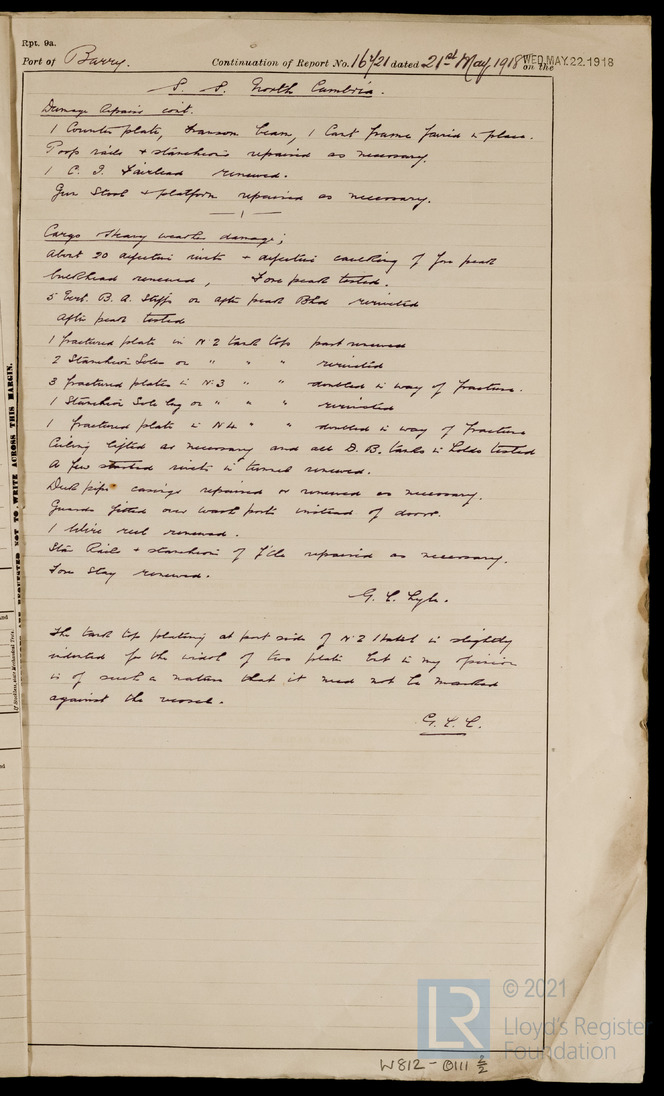 Rpt. 9a.
Port of Barry. Continuation of Report No. 16421 dated 21st May 1918 on the
WED. MAY. 22. 1918
S. S. North Cambria.
Damage Repairs cont.
1 Counter plate, transom beam, 1 Cant frame faired in place.
Poop rails & stanchions repaired as necessary.
1 C. I. Fairlead renewed.
Gun Stool & platform repaired as necessary.
Cargo heavy weather damage;
About 20 defective rivets & defective caulking of fore peak
bulkhead renewed, Fore peak tested.
5 Vert. B. A. Stiffs on after peak Bhd reriveted
After peak tested
1 fractured plate in No 2 tank top part renewed
2 Stanchion Soles on " " " reriveted
3 fractured plates in No 3 " " doubled in way of fracture.
1 Stanchion Sole lug on " " " reriveted
1 fractured plate in No 4 " " doubled in way of fracture
Ceiling lifted as necessary and all D. B. tanks in holds tested
A few started rivets in tunnel renewed.
Deck pipe casings repaired or renewed as necessary.
Guards fitted over wash ports instead of doors.
1 Wire reel renewed.
Star Rails & stanchions of f'cle repaired as necessary.
Fore Stay renewed.
G. L. Lyle.
The tank top plating at port side of No 2 Hatch is slightly
indented for the width of two plates but in my opinion
is of such a nature that it need not be marked
against the vessel.
G. L. L.
REQUESTED NOT TO WRITE ACROSS THIS MARGIN.
LR
© 2021
Lloyd's Register
Foundation
W812-0111 2/2